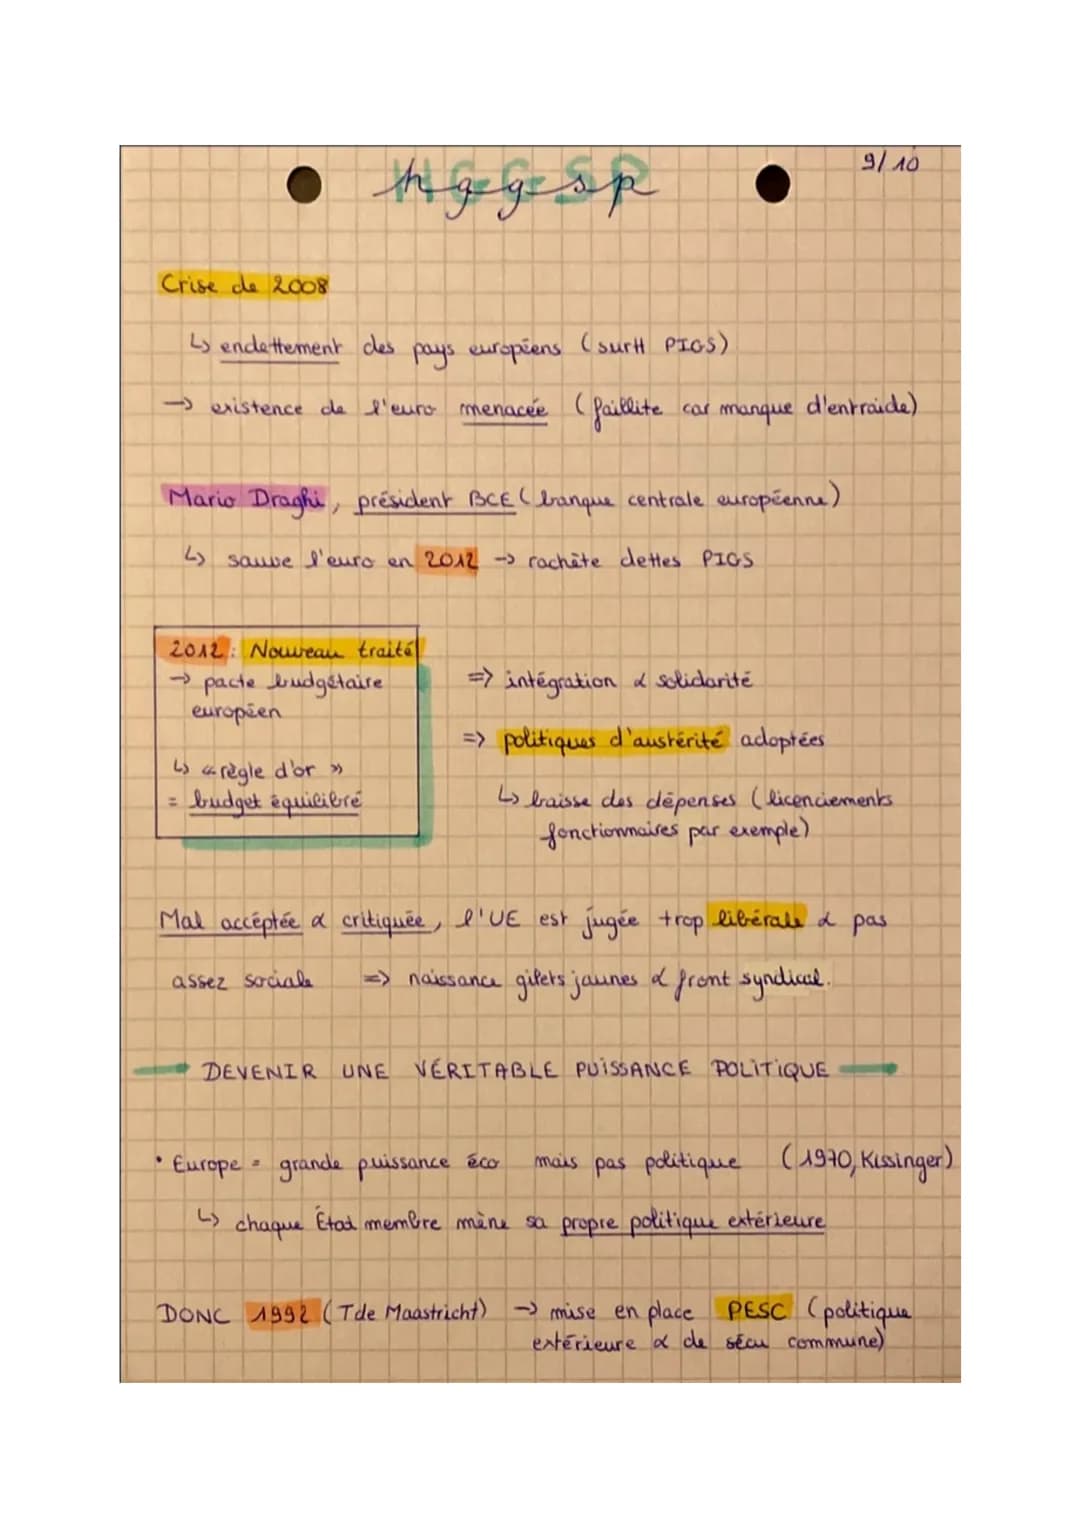 hggsp
9/10
Crise de 2008
↳ endettement des pays européens (surtt PIGS)
→ existence de l'euro menacée (faillite car manque d'entraide)
Mario Draghi, président BCE (banque centrale européenne)
↳ sauve l'euro en 2012 → rachète dettes PIGS
2012 : Nouveau traité
→ pacte budgétaire
européen
↳ « règle d'or »
= budget équilibré
=> intégration & solidarité
=> politiques d'austérité adoptées
↳ baisse des dépenses (licenciements
fonctionnaires par exemple)
Mal accéptée & critiquée, l'UE est jugée trop libérale & pas
assez sociale => naissance gilets jaunes & front syndical.
DEVENIR UNE VÉRITABLE PUISSANCE POLITIQUE
• Europe = grande puissance éco mais pas politique (1970, Kissinger)
↳ chaque État membre mène sa propre politique extérieure
DONC 1992 (T de Maastricht) → mise en place PESC (politique
extérieure & de sécu commune)